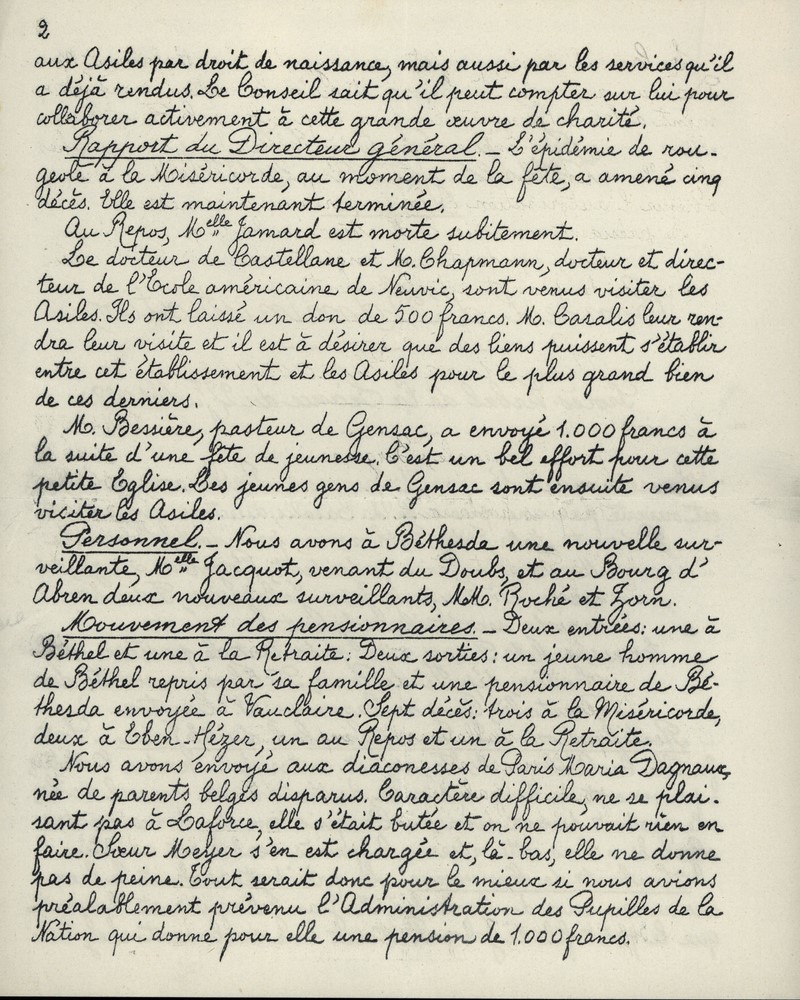 2
aux Asiles par droit de naissance, mais aussi par les services qu'il
a déjà rendus. Le Conseil sait qu'il peut compter sur lui pour
collaborer activement à cette grande œuvre de charité.
Rapport du Directeur général. — L'épidémie de rou-
geole à la Miséricorde, au moment de la fête, a amené cinq
décès. Elle est maintenant terminée.
Au Repos, Melle Jamard est morte subitement.
Le docteur de Castellane et M. Chapmann, docteur et direc-
teur de l'Ecole américaine de Neuvic, sont venus visiter les
Asiles. Ils ont laissé un don de 500 francs. M. Casalis leur ren-
dra leur visite et il est à désirer que des liens puissent s'établir
entre cet établissement et les Asiles pour le plus grand bien
de ces derniers.
M. Bessière, pasteur de Gensac, a envoyé 1.000 francs à
la suite d'une fête de jeunesse. C'est un bel effort pour cette
petite Eglise. Les jeunes gens de Gensac sont ensuite venus
viciter les Asiles.
Personnel. — Nous avons à Béthesda une nouvelle sur-
veillante, Melle Jacquot, venant du Doubs, et au Bourg d'
Abren deux nouveaux surveillants, MM. Roché et Zorn.
Mouvement des pensionnaires. — Deux entrées: une à
Béthel et une à la Retraite: Deux sorties: un jeune homme
de Béthel repris par sa famille et une pensionnaire de Bé-
thesda envoyée à Vauclaire. Sept décès: trois à la Miséricorde,
deux à Eben-Hézer, un au Repos et un à la Retraite.
Nous avons envoyé aux diaconesses de Paris Maria Dagnaux,
née de parents belges disparus. Caractère difficile, ne se plai-
sant pas à Laforce, elle s'était butée et on ne pouvait rien en
faire. Sœur Meyer s'en est chargée et, là-bas, elle ne donne
pas de peine. Tout serait donc pour le mieux si nous avions
préalablement prévenu l'Administration des Pupilles de la
Nation qui donne pour elle une pension de 1.000 francs.